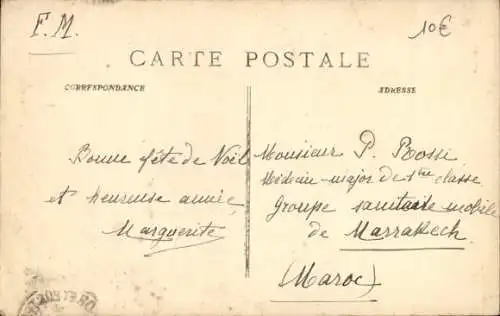 F. M.
10€
CARTE POSTALE
CORRESPONDANCE
ADRESSE
Bonne fête de Noël
et heureuse année
Marguerite
Monsieur P. Rossi
Médecin-major de 1ère classe
Groupe sanitaire mobile
de Marrakech
(Maroc)